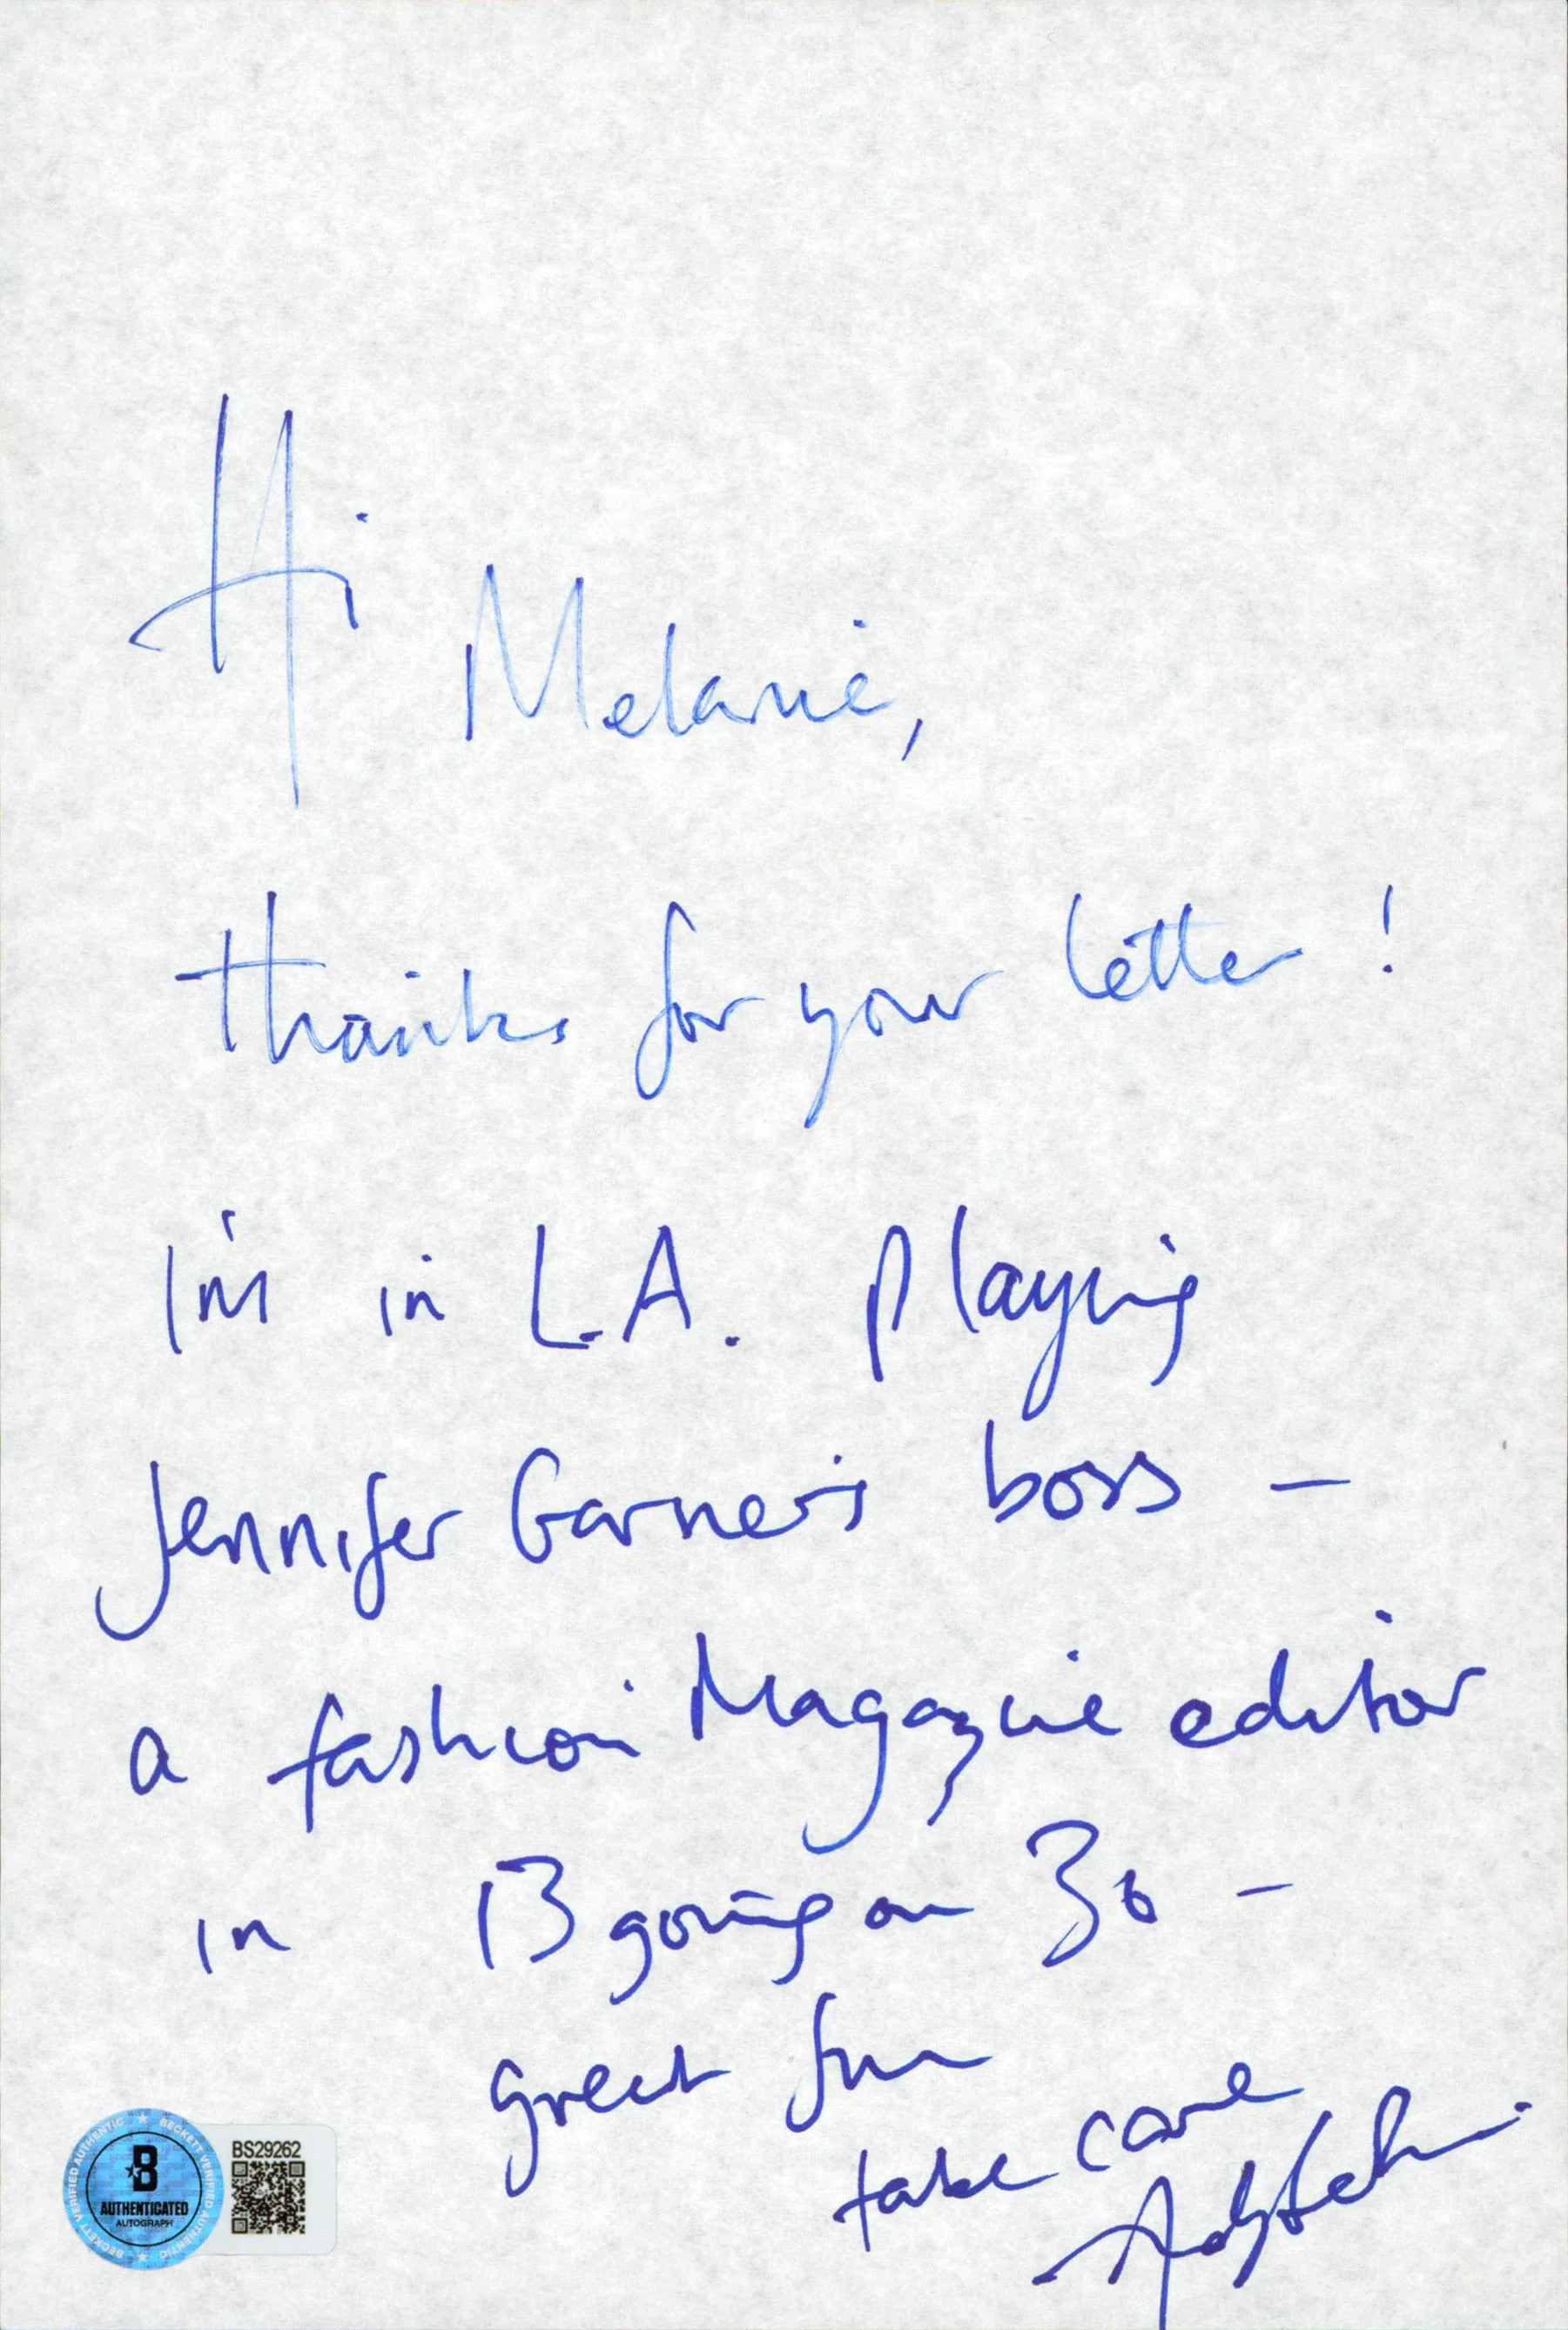 Hi Melanie,
thanks for your letter!
I'm in L.A. playing
Jennifer Garner's boss –
a fashion Magazine editor
in 13 going on 30 –
great fun
take care
BECKETT VERIFIED AUTHENTIC ★ BECKETT VERIFIED AUTHENTIC ★
B
AUTHENTICATED
AUTOGRAPH
BS29262